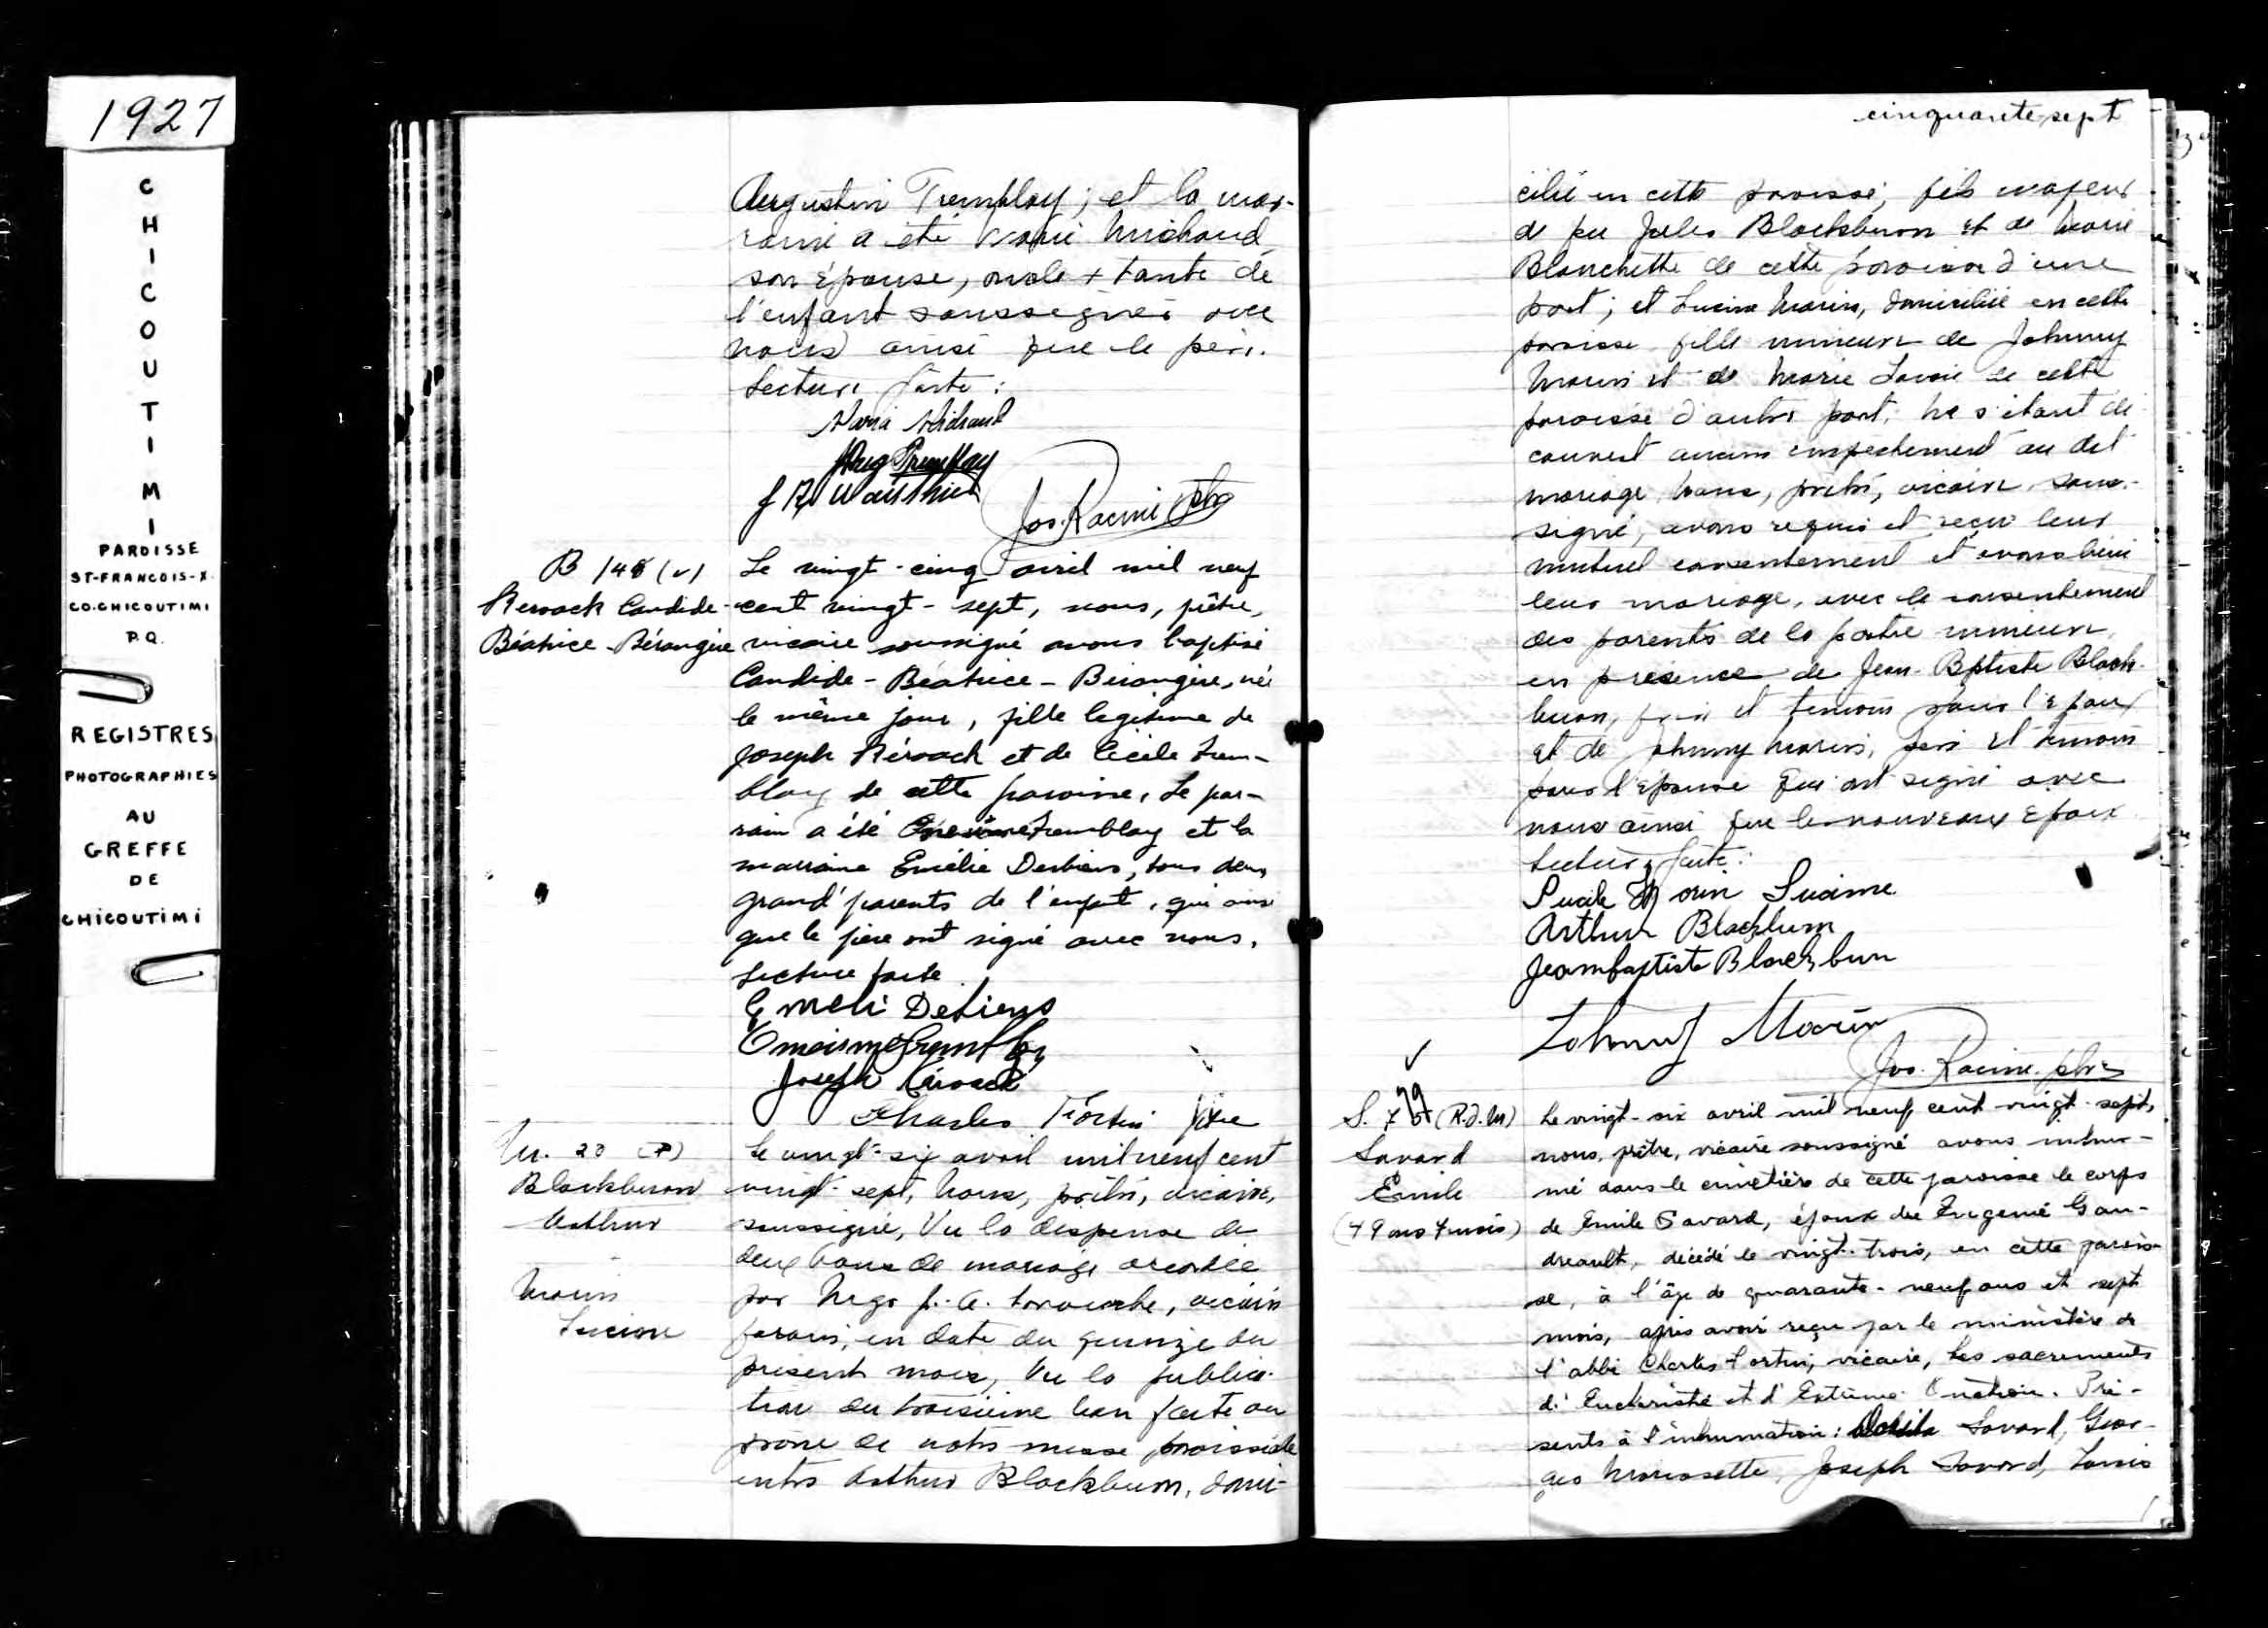 1927
CHICOUTIMI
PAROISSE
ST-FRANCOIS-X.
CO. CHICOUTIMI
P.Q.
REGISTRES
PHOTOGRAPHIES
AU
GREFFE
DE
CHICOUTIMI
Augustin Tremblay; et la mar-
raine a été Maria Michaud
son épouse, oncle + tante de
l'enfant soussignés avec
nous ainsi que le père.
Lecture faite:
Maria Michaud
Aug Tremblay
J R
Jos. Racine ptre
B 148 (v)
Kérouack Candide-
Béatrice-Bérangère
Le vingt-cinq avril mil neuf
cent vingt-sept, nous, prêtre,
vicaire soussigné avons baptisé
Candide-Béatrice-Bérangère, née
le même jour, fille légitime de
Joseph Kérouack et de Cécile Trem-
blay de cette paroisse. Le par-
rain a été Onésime Tremblay et la
marraine Emélie Desbiens, tous deux
grand'parents de l'enfant, qui ainsi
que le père ont signé avec nous.
Lecture faite
Emeli Debiens
Onesime Tremblay
Joseph Kérouack
Charles Fortin ptre
M. 20
Blackburn
Arthur
Morin
Lucine
Le vingt-six avril mil neuf cent
vingt-sept, nous, prêtre, vicaire,
soussigné, Vu la dispense de
deux bans de mariage accordée
par Mgr F.-A. Larouche, vicaire
forain, en date du quinze du
présent mois, Vu la publica-
tion du troisième ban faite au
prône de notre messe paroissiale
entre Arthur Blackburn, domi-
cinquante-sept
cilié en cette paroisse, fils majeur
de feu Jules Blackburn et de Marie
Blanchette de cette paroisse d'une
part; et Lucine Morin, domiciliée en cette
paroisse fille mineure de Johnny
Morin et de Marie Savoie de cette
paroisse d'autre part. Ne s'étant dé-
couvert aucun empêchement au dit
mariage, Nous, prêtre, vicaire, sous-
signé, avons requis et reçu leur
mutuel consentement et avons béni
leur mariage, avec le consentement
des parents de la partie mineure,
en présence de Jean-Bptiste Black-
burn, et témoin pour l'époux
et de Johnny Morin, père et témoin
pour l'épouse qui ont signé avec
nous ainsi que les nouveaux époux
Lecture faite:
Morin Lucine
Arthur Blackburn
Jeanbaptiste Blackburn
Johnny Morin
Jos. Racine ptre
S. 79 (R.J.M)
Savard
Emile
(49 ans 7 mois)
Le vingt-six avril mil neuf cent vingt-sept,
nous, prêtre, vicaire soussigné avons inhu-
mé dans le cimetière de cette paroisse le corps
de Emile Savard, époux de Eugénie Gau-
dreault, décédé le vingt-trois, en cette parois-
se, à l'âge de quarante-neuf ans et sept
mois, après avoir reçu par le ministère de
l'abbé Charles Fortin, vicaire, les sacrements
d'Eucharistie et d'Extrême-Onction. Pré-
sents à l'inhumation: Savard, Geor-
ges Morissette, Joseph Savard, Louis